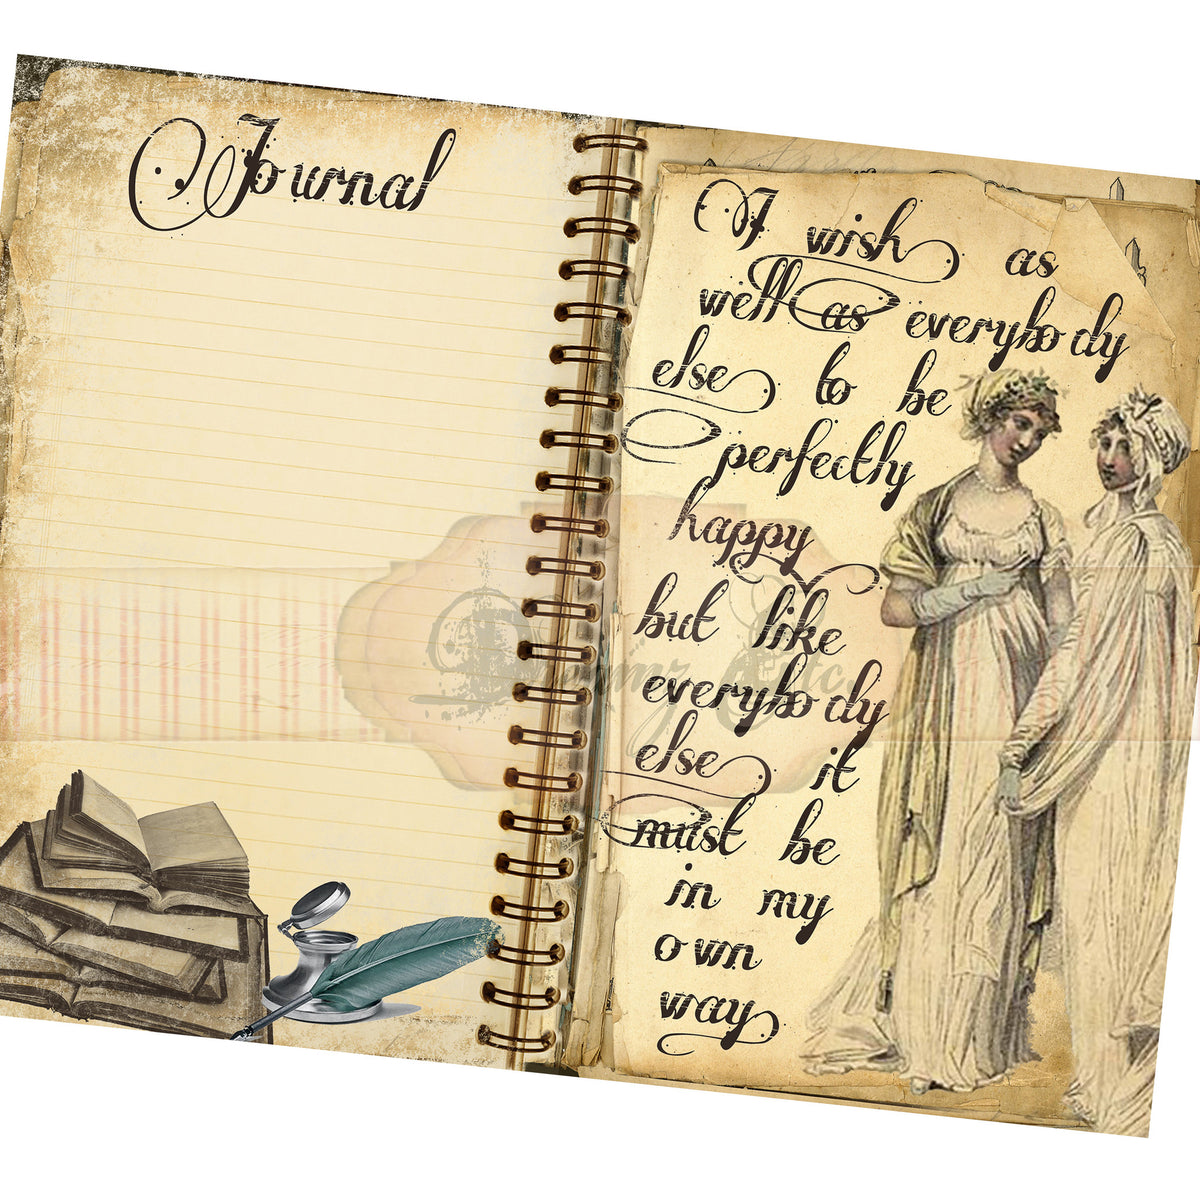 Journal
I wish as
well as everybody
else to be
perfectly
happy
but like
everybody
else it
must be
in my
own
way